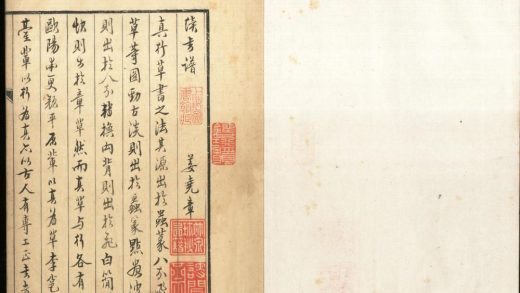 續書譜
姜堯章
真行草書之法其源出於蟲篆八分飛
草等圓勁古淡則出於蟲篆點畫波
則出於八分轉換向背則出於飛白簡
快則出於章草然而真草與行各有
歐陽率更顏平原輩以真為草李邕
臺輩以行為真亦以古人有專工正書